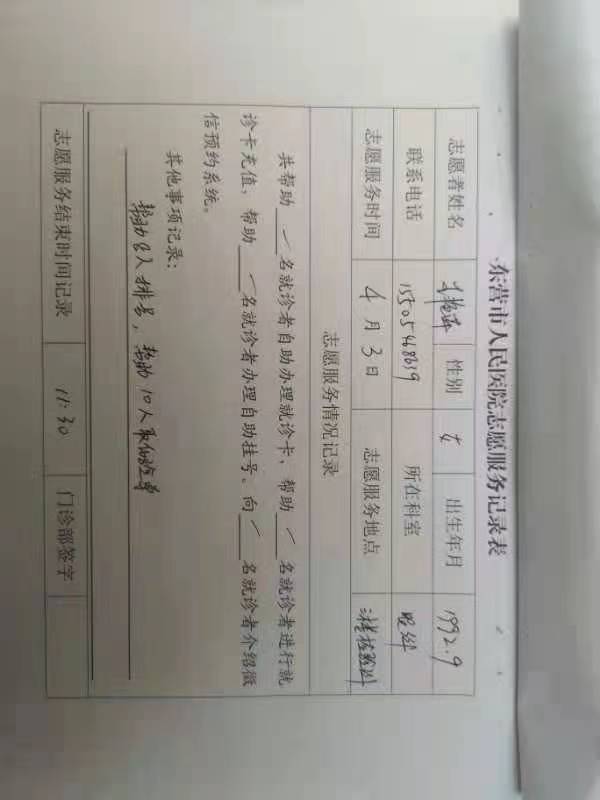 东营市人民医院志愿服务记录表
志愿者姓名 性别 女 出生年月 1992.9
联系电话 15505468639 所在科室 眼科
志愿服务时间 4月3日 志愿服务地点 三楼检验科
志愿服务情况记录
共帮助 / 名就诊者自助办理就诊卡，帮助 / 名就诊者进行就
诊卡充值，帮助 / 名就诊者办理自助挂号，向 / 名就诊者介绍微
信预约系统。
其他事项记录：
帮助8人排号，帮助10人取化验单
志愿服务结束时间记录 11:30 门诊部签字